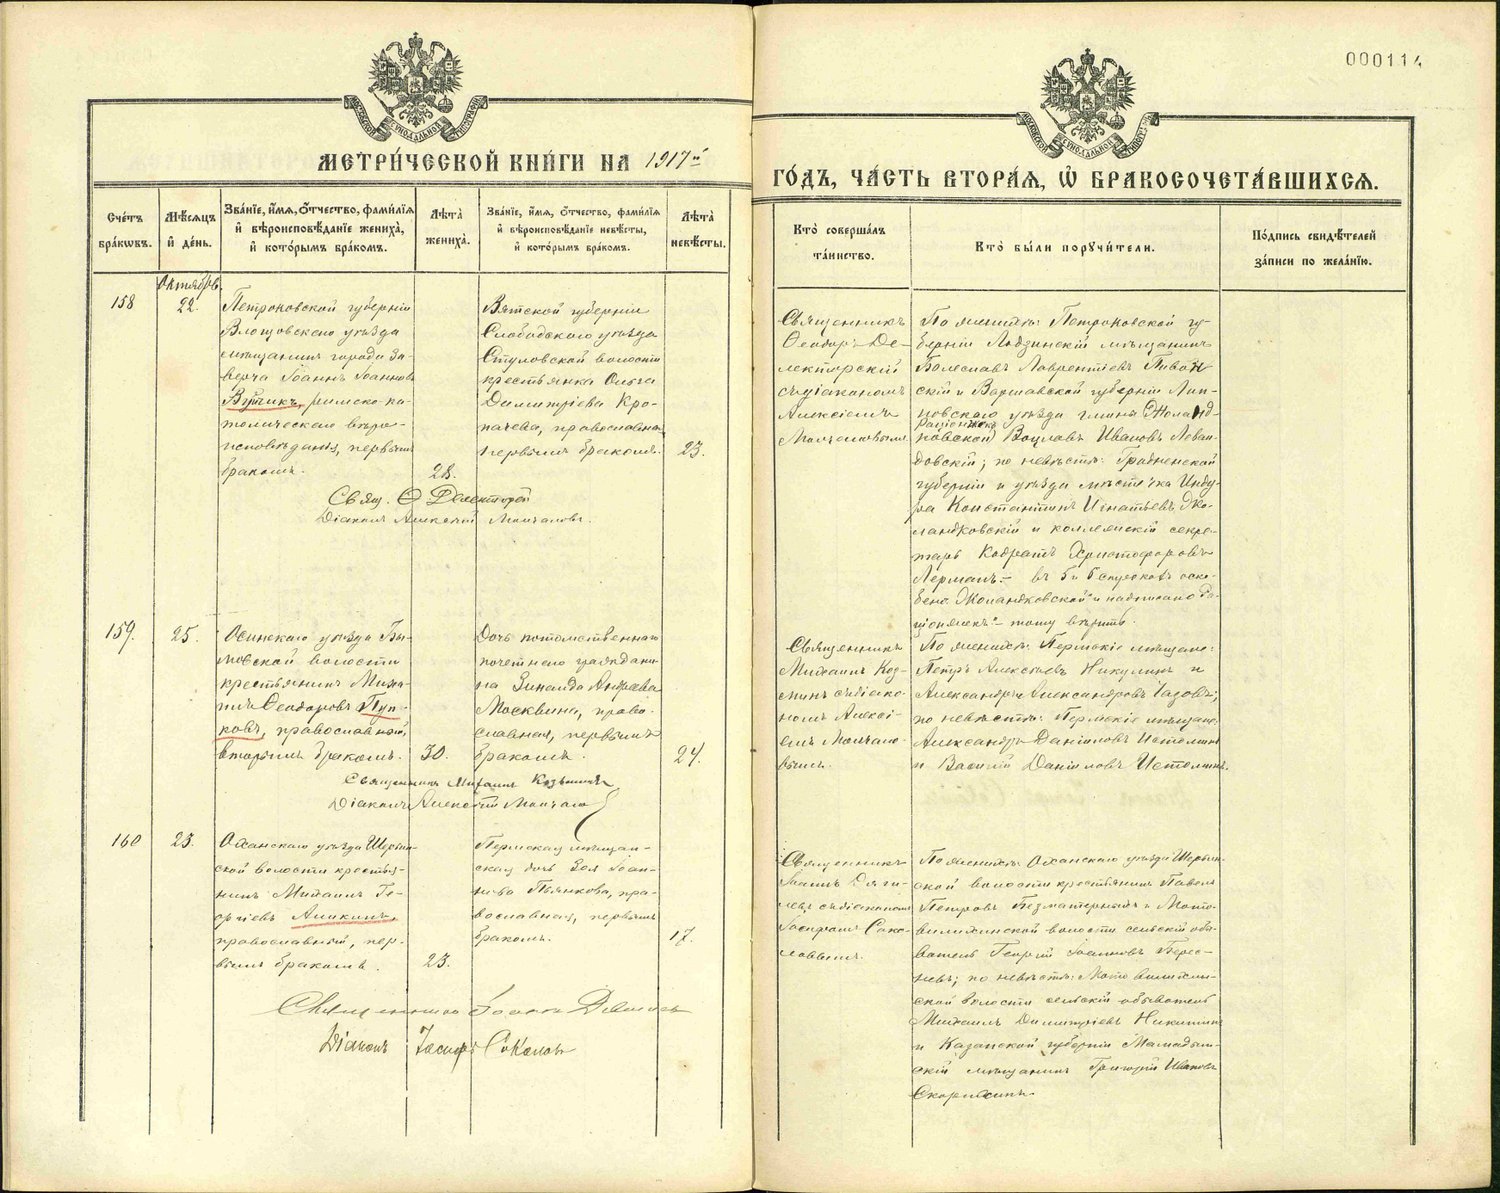 000114
МЕТРИ́ЧЕСКОЙ КНИ́ГИ НА 1917й
ГО́ДЪ, ЧА́СТЬ ВТОРА́Я, Ѡ БРАКОСОЧЕТА́ВШИХСЯ.
Сче́тъ бра́кѡвъ.
Мѣ́сяцъ и́ де́нь.
Зва́нїе, и́мя, ѻ́тчество, фами́лїя и́ вѣроисповѣ́данїе жениха̀, и́ кото́рымъ бра́комъ.
Лѣ́та жениха̀.
Зва́нїе, и́мя, ѻ́тчество, фами́лїя и́ вѣроисповѣ́данїе невѣ́сты, и́ кото́рымъ бра́комъ.
Лѣ́та невѣ́сты.
Кто̀ соверша́лъ та́инство.
Кто̀ бы́ли поручи́тели.
По́дпись свидѣ́телей за́писи по жела́нїю.
Октябрь
158
22.
Петроковской губерніи
Влощовскаго уѣзда
мѣщанинъ города За-
верча Іоаннъ Іоанновъ
Вуйчикъ, римско-ка-
толическаго вѣро-
исповѣданія, первымъ
бракомъ.
28.
Вятской губерніи
Слободского уѣзда
Стуловской волости
крестьянка Ольга
Димитріева Кро-
пачева, православная,
первымъ бракомъ.
23.
Свящ. Ѳ Делекторскій
Діаконъ Алексій Молчановъ.
Священникъ
Ѳеодоръ Де-
лекторскій
съ діакономъ
Алексіемъ
Молчановымъ
По женихѣ: Петроковской гу-
берніи Лодзинскій мѣщанинъ
Болеславъ Лаврентіевъ Пивон
скій и Варшавской губерніи Лип-
новскаго уѣзда гмины Жоланд-
ковской Вацлавъ Ивановъ Леван-
довскій; по невѣстѣ: Гродненской
губерніи и уѣзда мѣстечка Инду-
ра Константинъ Игнатьевъ Жо-
ландковскій и коллежскій секре-
тарь Кодратъ Христофоровъ
Лерманъ. – въ 5 и 6 строкахъ оско-
блено „Жоландковской“ и надписано „Ра-
ціонжекъ“ – тому вѣрить.
159.
25.
Осинскаго уѣзда Бы-
мовской волости
крестьянинъ Миха-
илъ Ѳеодоровъ Пуп-
ковъ, православный,
вторымъ бракомъ.
30.
Дочь потомственнаго
почетнаго граждани-
на Зинаида Андреева
Москвина, право-
славная, первымъ
бракомъ.
24.
Священникъ Михаилъ Козьминъ
Діаконъ Алексій Молчановъ
Священникъ
Михаилъ Коз-
минъ съ діако-
номъ Алексі-
емъ Молчано-
вымъ.
По женихѣ: Пермскіе мѣщане:
Петръ Алексѣевъ Никулинъ и
Александръ Александровъ
по невѣстѣ: Пермскіе мѣщане:
Александръ Даніиловъ Истоминъ
и Василій Даніиловъ Истоминъ.
160
23.
Оханскаго уѣзда Шерьин-
ской волости крестья-
нинъ Михаилъ Ге-
оргіевъ Аликинъ,
православный, пер-
вымъ бракомъ.
23.
Пермская мѣщан-
ская дочь Зоя Іоан-
нова Пьянкова, пра-
вославная, первымъ
бракомъ.
17.
Священникъ Іоаннъ Дягилевъ
Діаконъ Іосифъ Соколовъ
Священникъ
Іоаннъ Дяги-
левъ съ діакономъ
Іосифомъ Соко-
ловымъ.
По женихѣ: Оханскаго уѣзда Шерьин-
ской волости крестьянинъ Павелъ
Петровъ Безматерныхъ и Мото-
вилихинской волости сельскій обы-
ватель Георгій Іоанновъ Берес-
невъ; по невѣстѣ: Мотовилихин-
ской волости сельскій обыватель
Михаилъ Димитріевъ Никитинъ
и Казанской губерніи Мамадыш-
скій мѣщанинъ Григорій Ивановъ